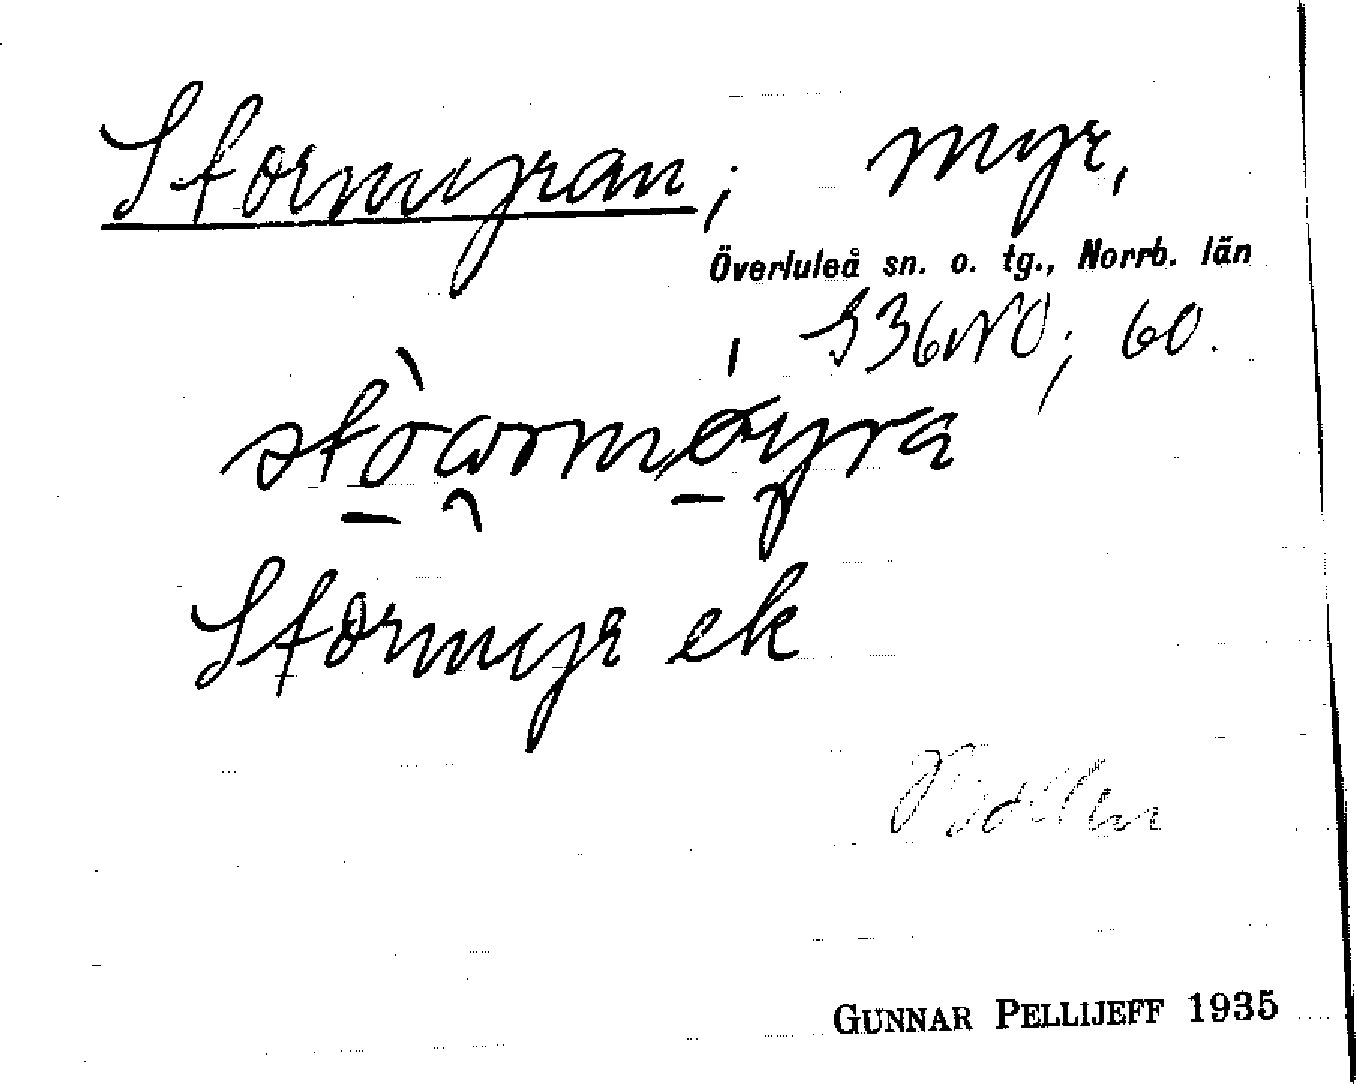 Stormyran; myr,
Överluleå sn. o. tg., Norrb. län
S36NO; 60.
Stormyr ek
GUNNAR PELLIJEFF 1935